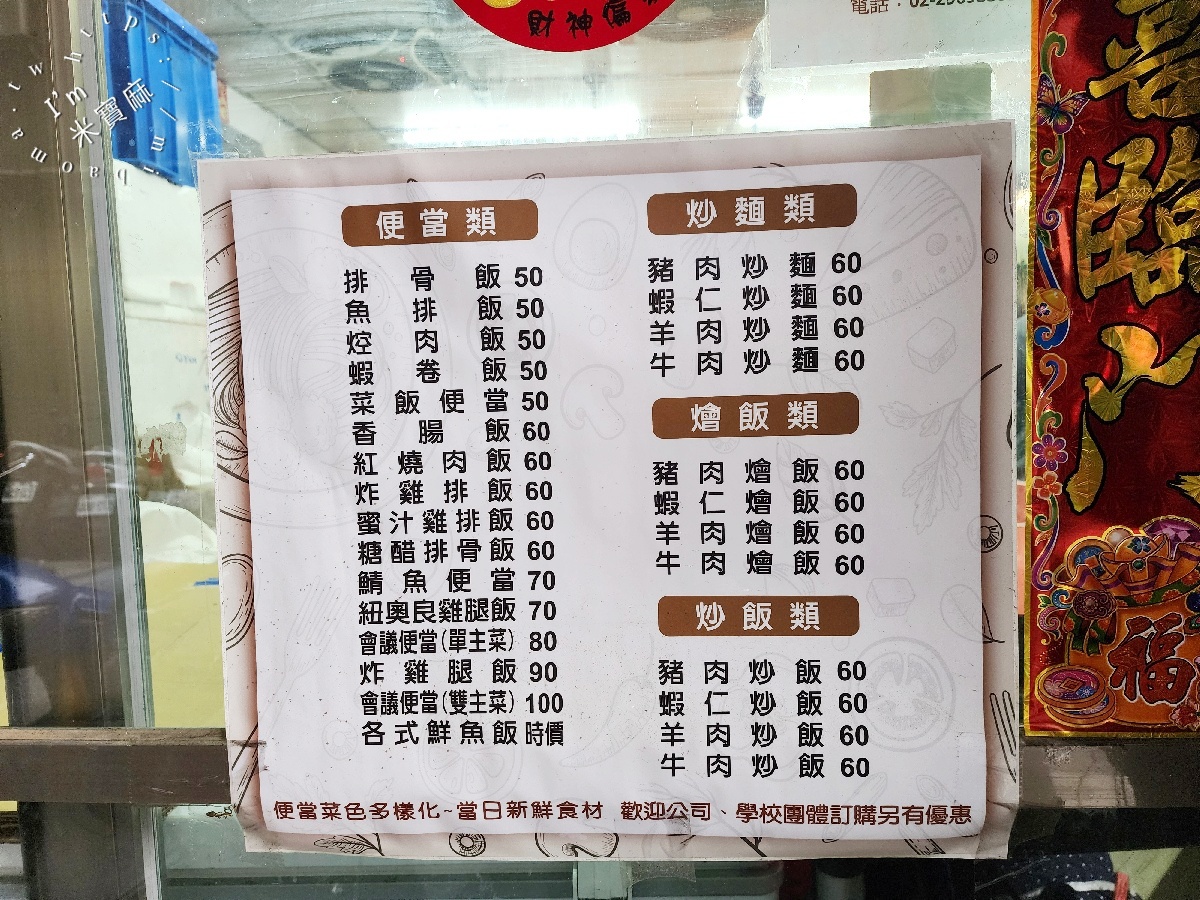 財神
電話：02-2
I'm
米寶麻
喜臨門
福
便當類
排骨飯 50
魚排飯 50
焢肉飯 50
蝦卷飯 50
菜飯便當 50
香腸飯 60
紅燒肉飯 60
炸雞排飯 60
蜜汁雞排飯 60
糖醋排骨飯 60
鯖魚便當 70
紐奧良雞腿飯 70
會議便當(單主菜) 80
炸雞腿飯 90
會議便當(雙主菜) 100
各式鮮魚飯 時價
炒麵類
豬肉炒麵 60
蝦仁炒麵 60
羊肉炒麵 60
牛肉炒麵 60
燴飯類
豬肉燴飯 60
蝦仁燴飯 60
羊肉燴飯 60
牛肉燴飯 60
炒飯類
豬肉炒飯 60
蝦仁炒飯 60
羊肉炒飯 60
牛肉炒飯 60
便當菜色多樣化~當日新鮮食材 歡迎公司、學校團體訂購另有優惠